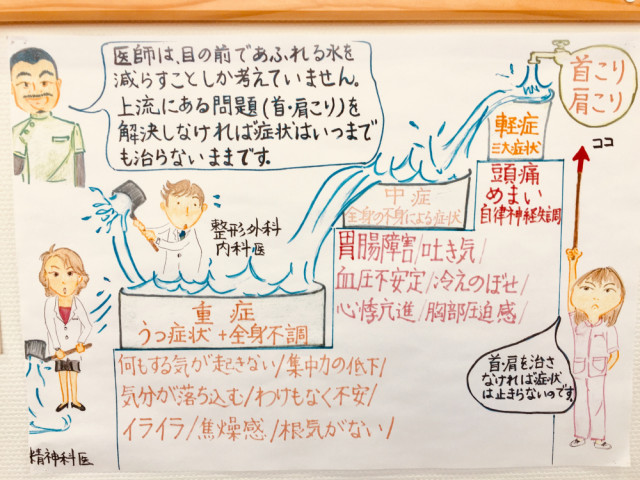 医師は、目の前であふれる水を
減らすことしか考えていません。
上流にある問題(首・肩こり)を
解決しなければ症状はいつまで
も治らないままです。
首こり
肩こり
ココ
軽症
三大症状
頭痛
めまい
自律神経失調
中症
全身の不身による症状
胃腸障害/吐き気/
血圧不安定/冷えのぼせ/
心悸亢進/胸部圧迫感/
整形外科
内科医
重症
うつ症状+全身不調
何もする気が起きない/集中力の低下/
気分が落ち込む/わけもなく不安/
イライラ/焦燥感/根気がない/
首・肩を治さ
なければ症状
は止まらないのです。
精神科医